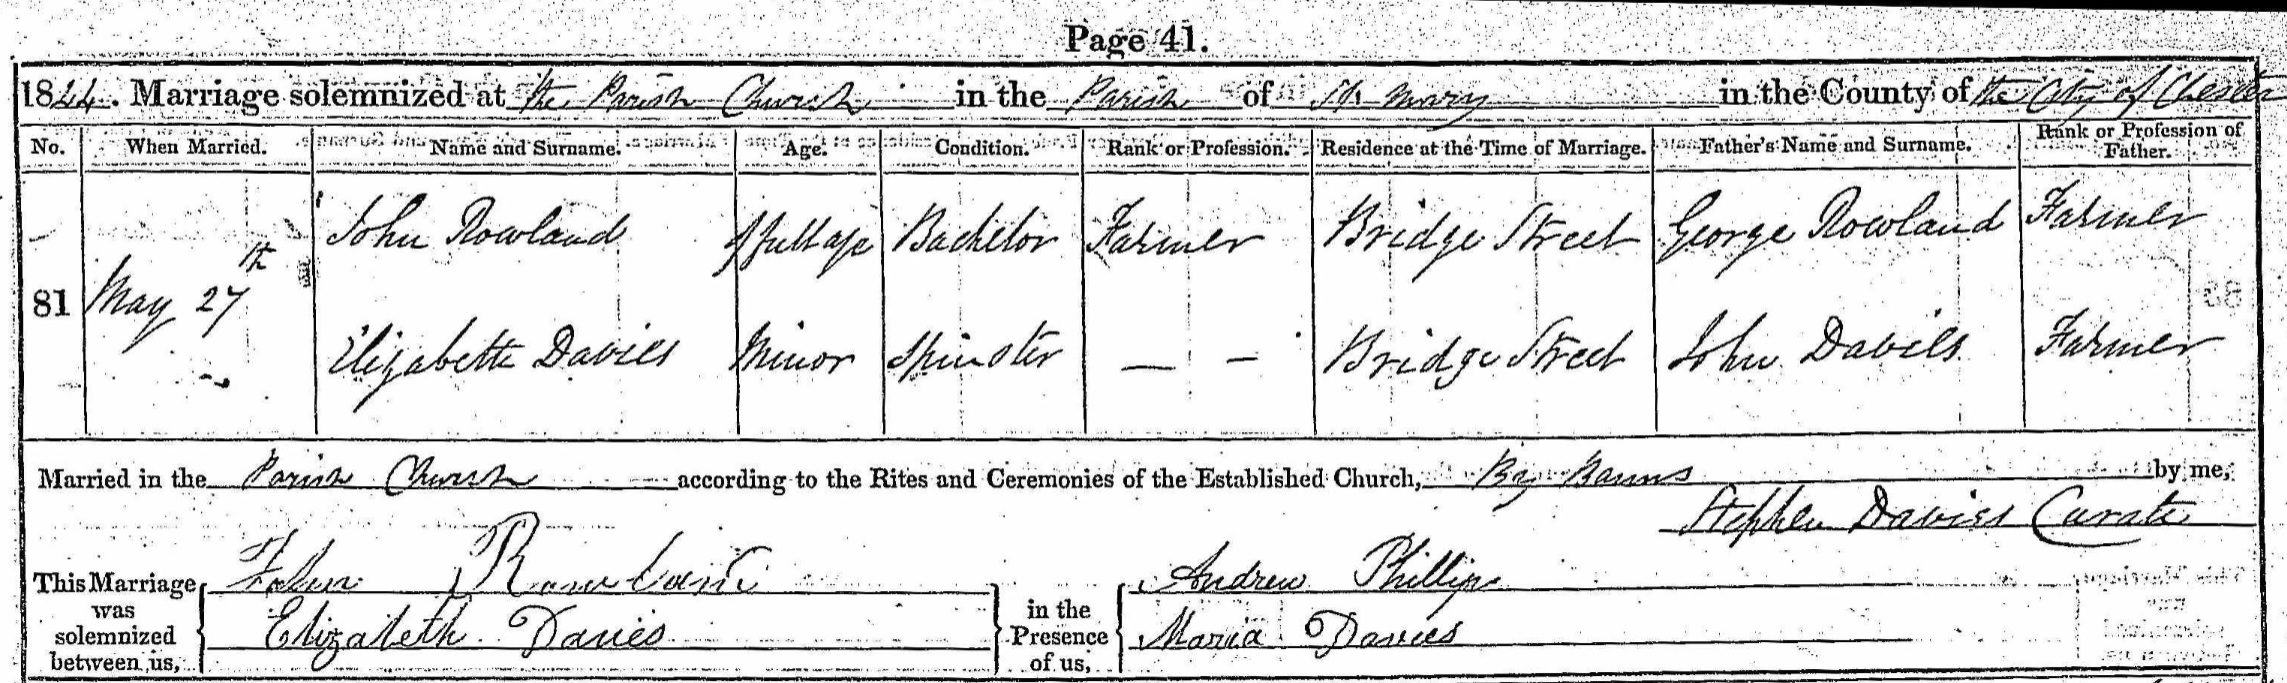 Page 41.
1844. Marriage solemnized at the Parish Church in the Parish of St. Mary in the County of the City of Chester
No. When Married. Name and Surname. Age. Condition. Rank or Profession. Residence at the Time of Marriage. Father's Name and Surname. Rank or Profession of Father.
John Rowland Of full age Bachelor Farmer Bridge Street George Rowland Farmer
81 May 27th
Elizabeth Davies Minor Spinster — — Bridge Street John Davies Farmer
Married in the Parish Church according to the Rites and Ceremonies of the Established Church, By Banns by me,
Stephen Davies Curate
This Marriage was solemnized between us,
John Rowland
Elizabeth Davies
in the Presence of us,
Andrew Phillips
Maria Davies